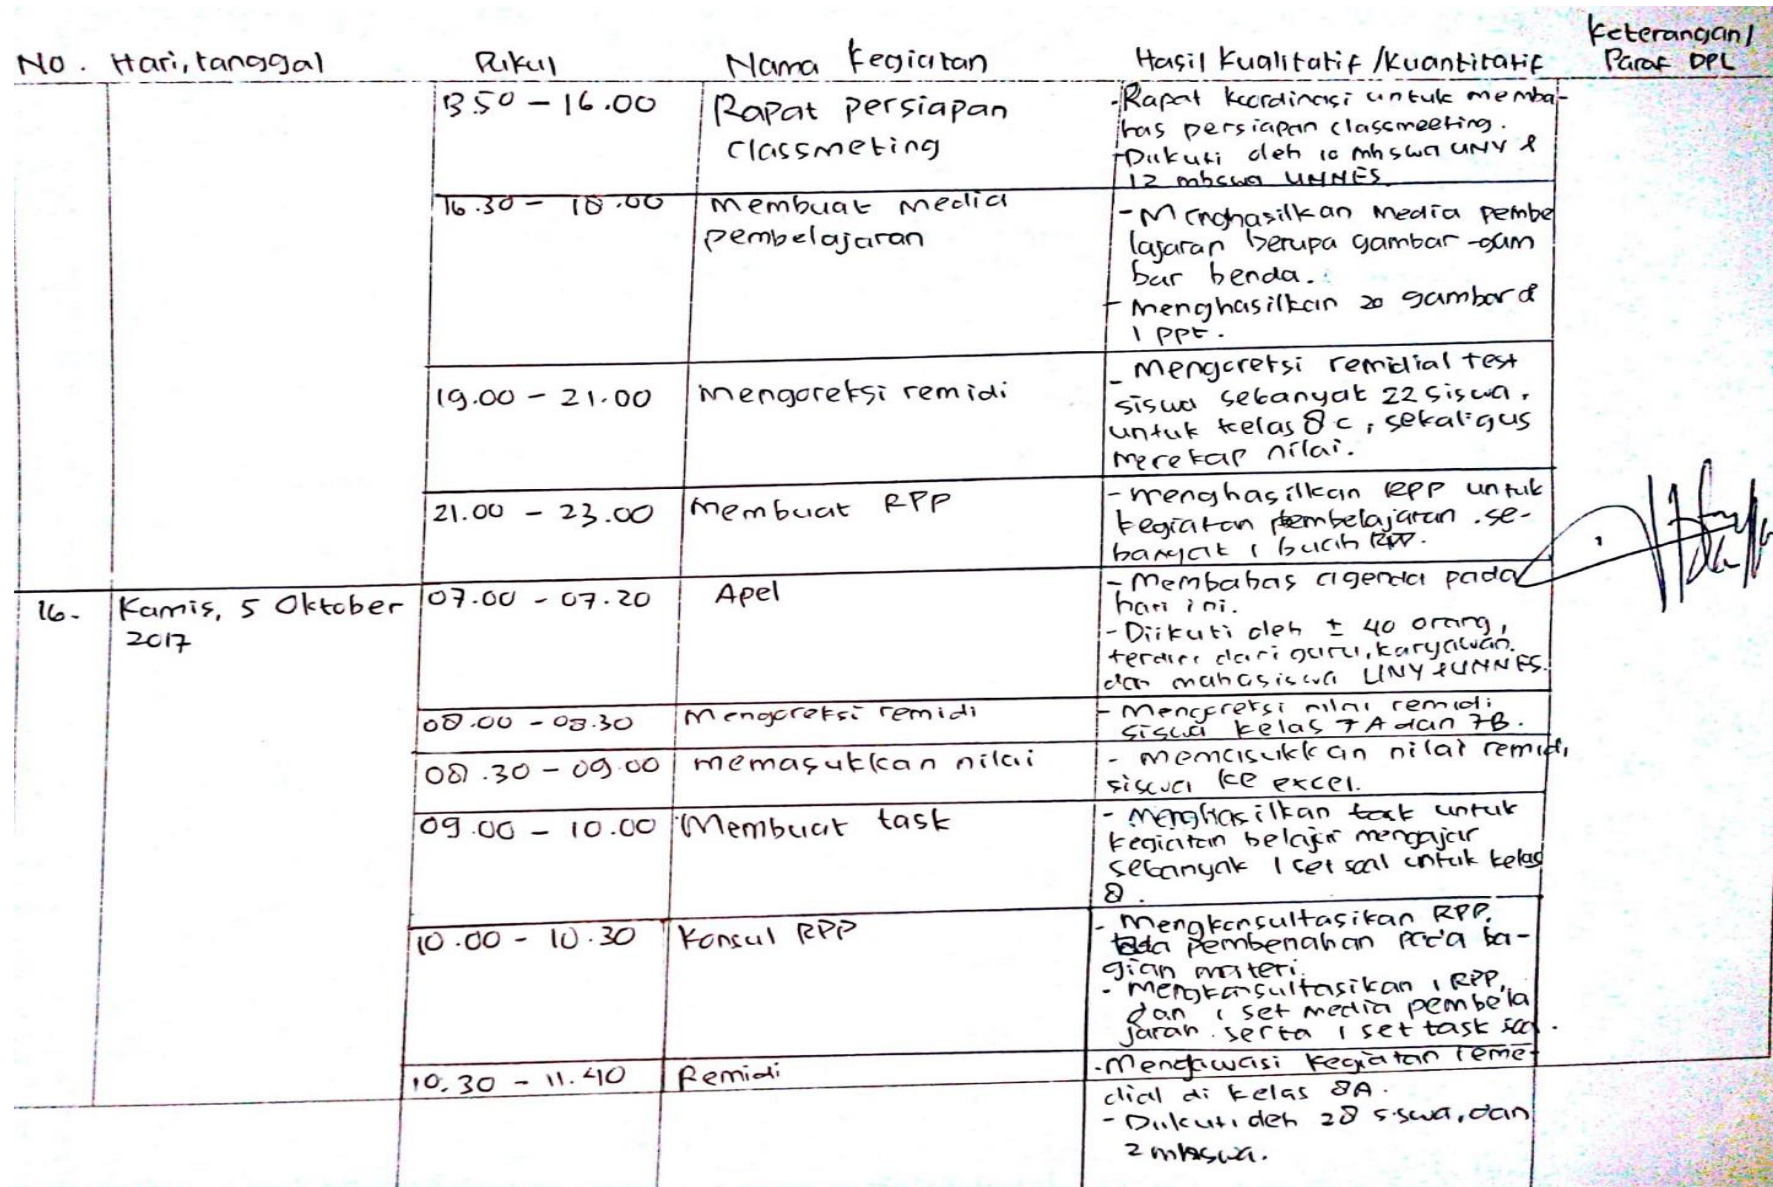 No. Hari, tanggal Pukul Nama Kegiatan Hasil Kualitatif /Kuantitatif Keterangan/
Paraf DPL
13.50 - 16.00 Rapat persiapan
classmeting
- Rapat koordinasi untuk memba-
has persiapan classmeeting.
- Diikuti oleh 10 mhswa UNY &
12 mhswa UNNES.
16.30 - 18.00 Membuat media
pembelajaran
- Menghasilkan media pembe
lajaran berupa gambar-gam
bar benda.
- Menghasilkan 20 gambar &
1 PPt.
19.00 - 21.00 Mengoreksi remidi
- Mengoreksi remidial test
siswa sebanyak 22 siswa,
untuk kelas 8 c, sekaligus
merekap nilai.
21.00 - 23.00 Membuat RPP
- menghasilkan RPP untuk
kegiatan pembelajaran. se-
banyak 1 buah RPP.
16. Kamis, 5 Oktober
2017
07.00 - 07.20 Apel
- Membahas agenda pada
hari ini.
- Diikuti oleh ± 40 orang,
terdiri dari guru, karyawan.
dan mahasiswa UNY & UNNES.
08.00 - 08.30 Mengoreksi remidi
- Mengoreksi nilai remidi
siswa kelas 7A dan 7B.
08.30 - 09.00 memasukkan nilai
- memasukkan nilai remidi
siswa ke excel.
09.00 - 10.00 Membuat task
- Menghasilkan task untuk
kegiatan belajar mengajar
sebanyak 1 set soal untuk kelas
8.
10.00 - 10.30 Konsul RPP
- Mengkonsultasikan RPP,
pembenahan pada ba-
gian materi.
- Mengkonsultasikan 1 RPP,
dan 1 set media pembela
jaran. serta 1 set task soal.
10.30 - 11.40 Remidi
- Mengawasi kegiatan reme-
dial di kelas 8A.
- Diikuti oleh 28 siswa, dan
2 mhswa.